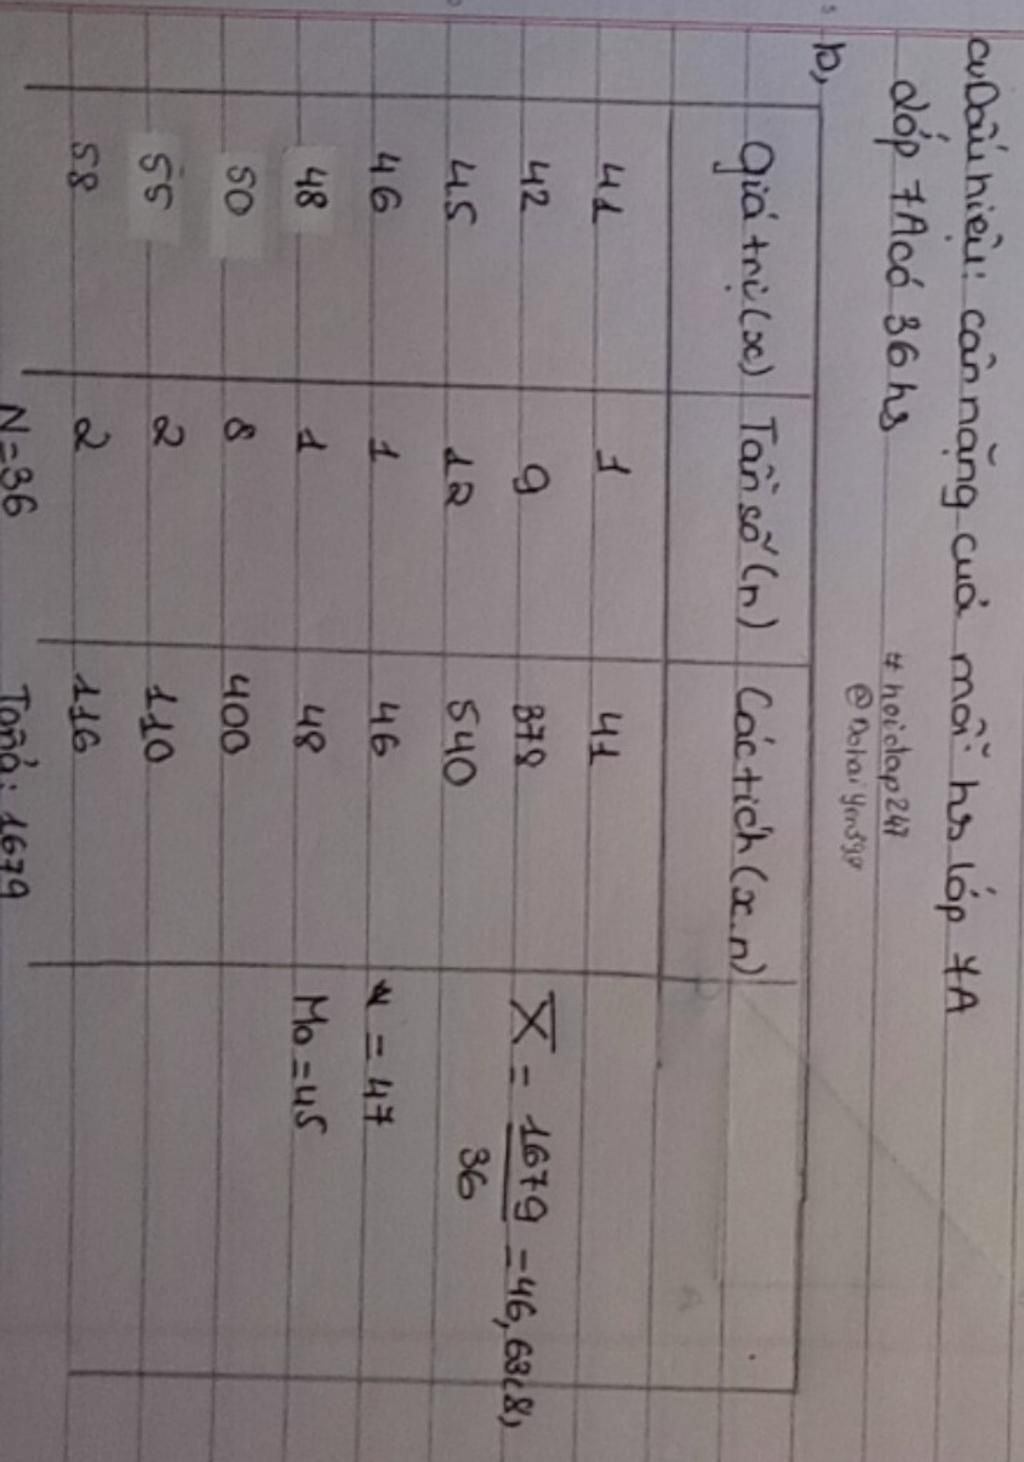 a, Dấu hiệu: cân nặng của mỗi hs lớp 7A
Lớp 7A có 36 hs
#hoidap247
b,
Giá trị (x) Tần số (n) Các tích (x.n)
41 1 41
42 9 378 X̅ = 1679/36 = 46,63(8)
45 12 540
46 1 46 ≈ 47
48 1 48 Mo = 45
50 8 400
55 2 110
58 2 116
N=36 Tổng: 1679